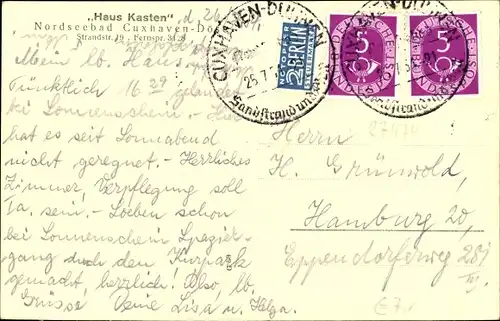 „Haus Kasten"
Nordseebad Cuxhaven-Do
Strandstr. 19 . Fernspr. 312
d. 24.
Mein lb. Hans
Pünktlich 16 39 gelandet
bei Sonnenschein. - Hier
hat es seit Sonnabend
nicht geregnet. - Herrliches
Zimmer, Verpflegung soll
Ia. sein. - Soeben schon
bei Sonnenschein Spazier-
gang durch den Kurpark
gemacht, herrlich! Also, lb.
Grüsse Deine Lisa u. Helga.
CUXHAVEN-DUHNEN
25.7.
Sandstrand
NOTOPFER
2 BERLIN
STEUERMARKE
5
DEUTSCHE
BUNDESPOST
5
DEUTSCHE
BUNDESPOST
Herrn
H. Grünwold,
Hamburg 20,
Eppendorferweg 281
III,